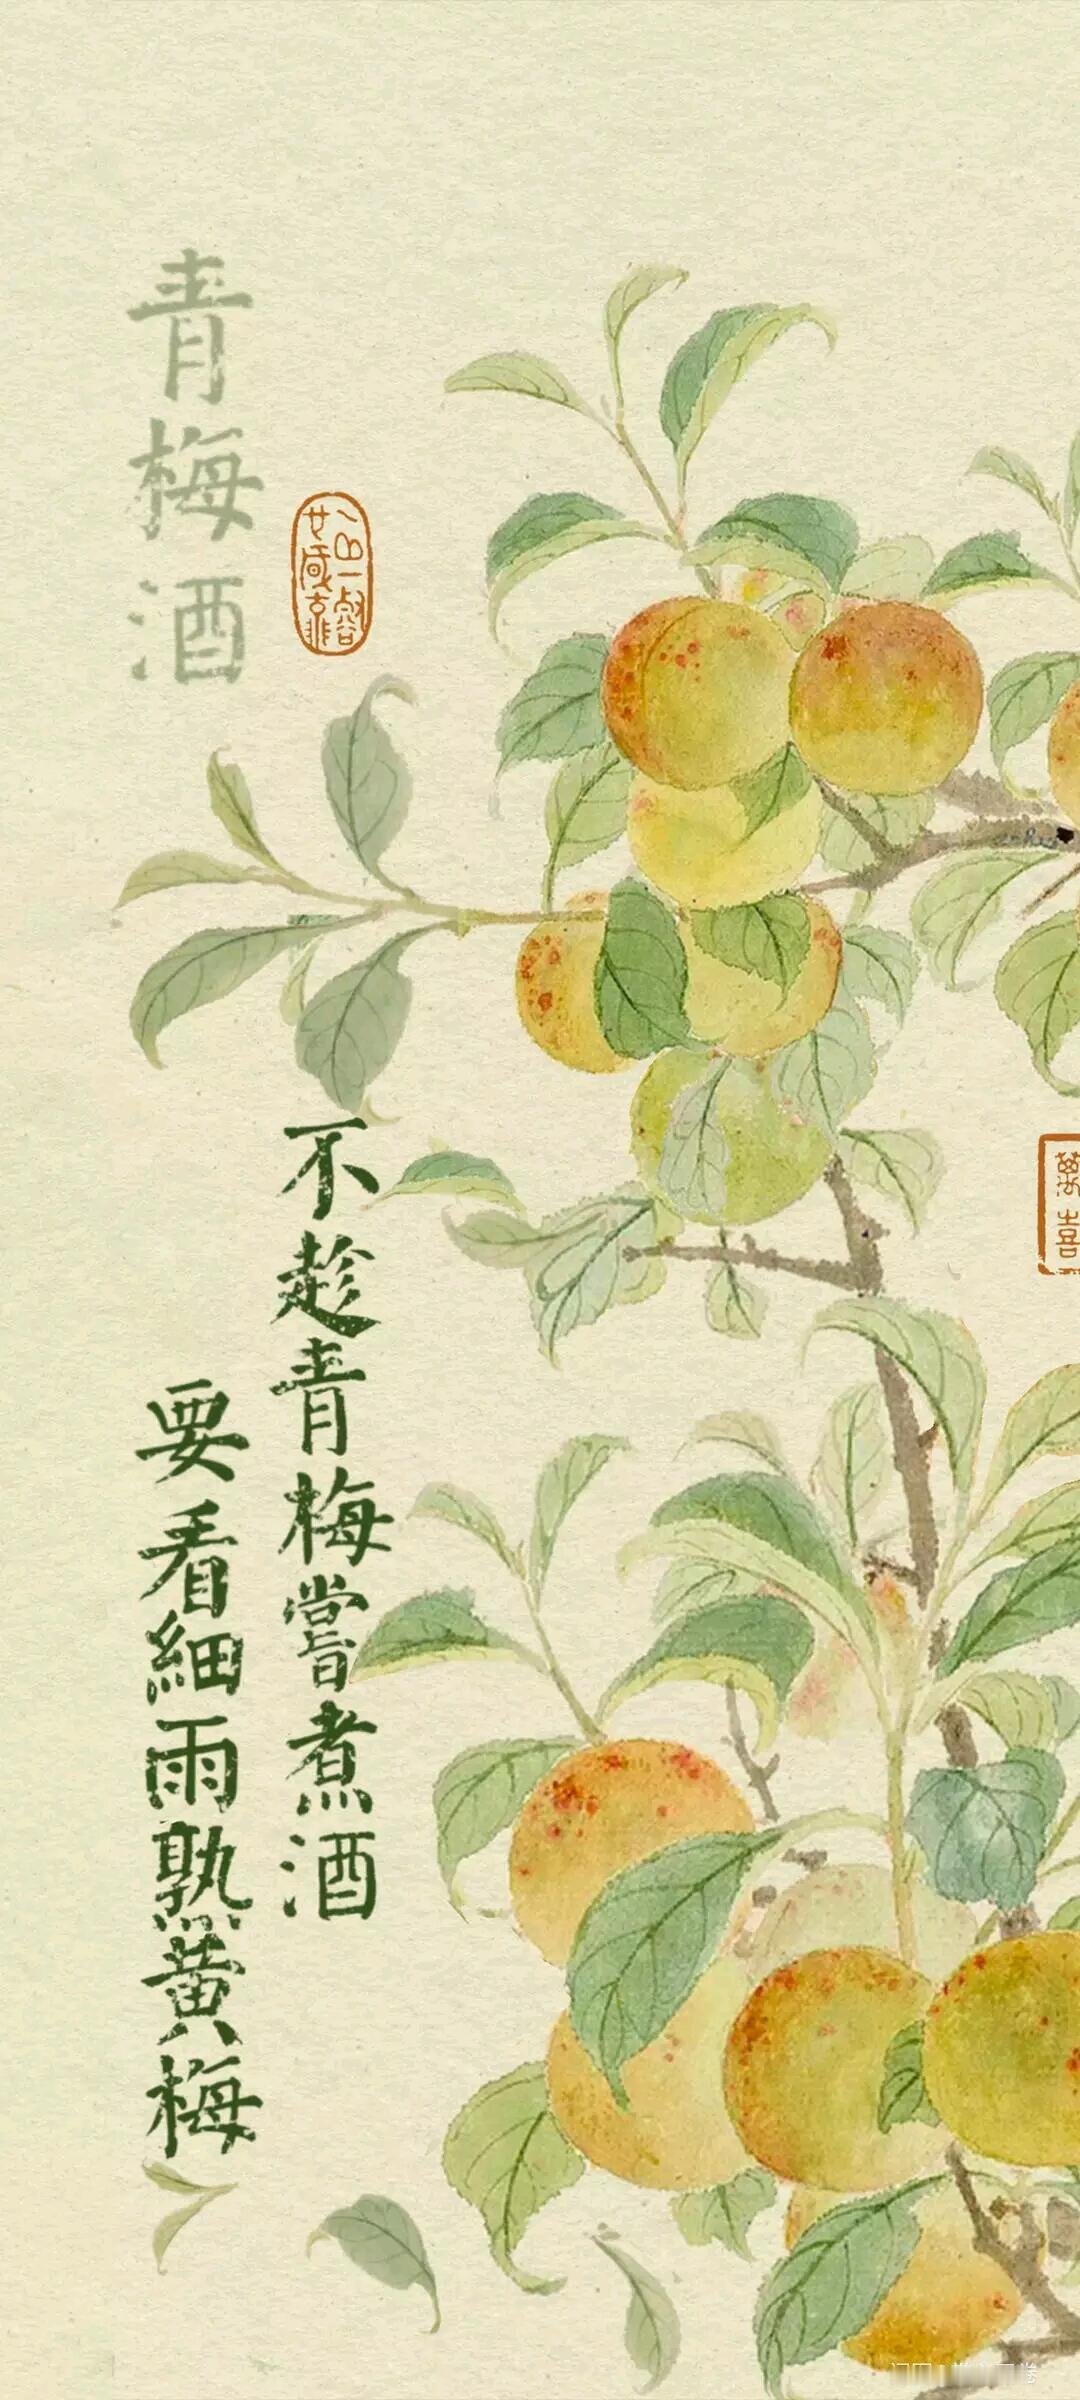 青梅酒
不趁青梅嘗煮酒
要看細雨熟黃梅
萬喜